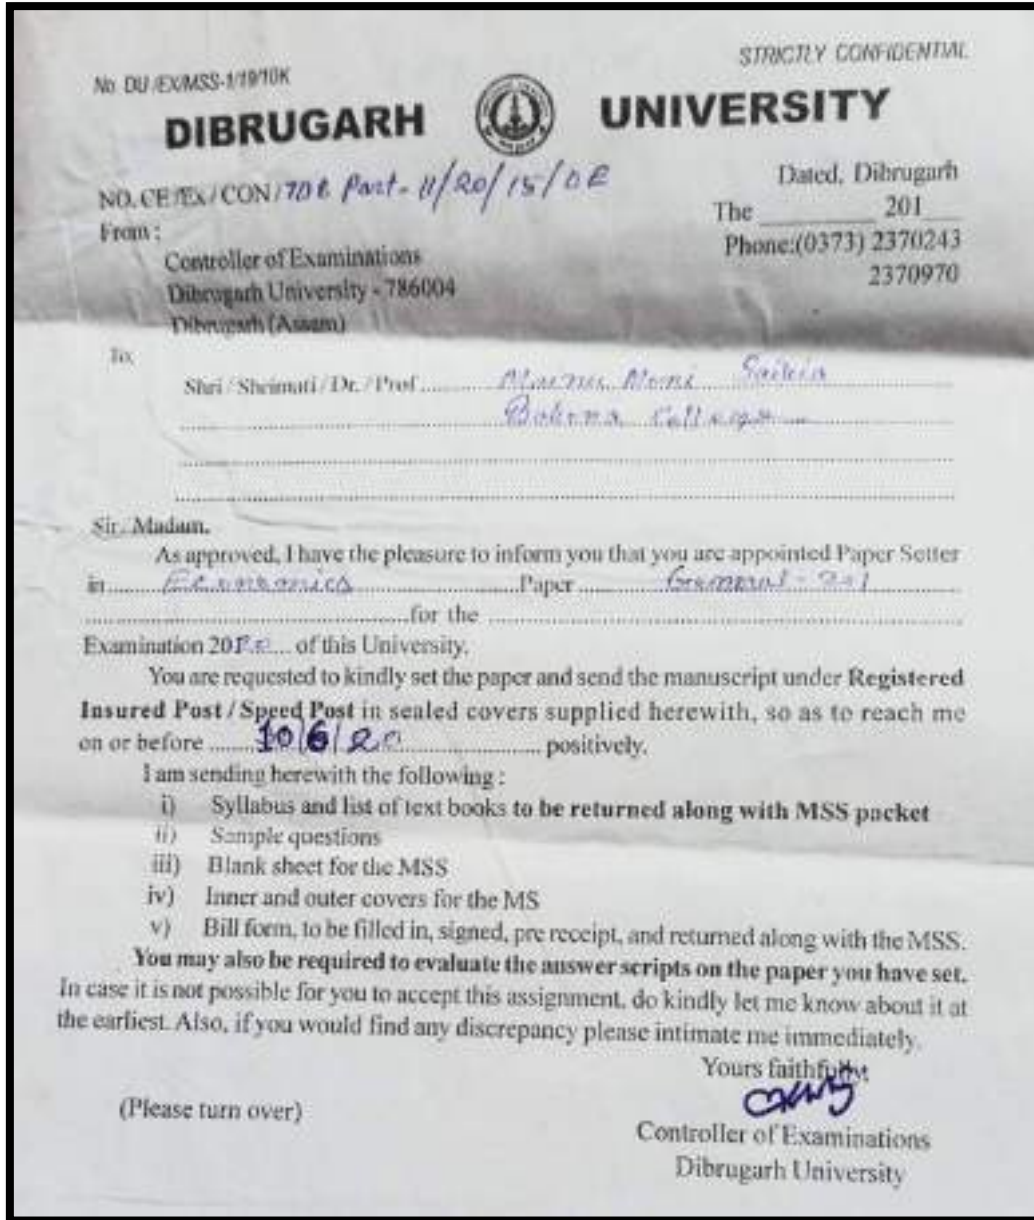 STRICTLY CONFIDENTIAL
No. DU/EX/MSS-1/19/10K
DIBRUGARH UNIVERSITY
Dated, Dibrugarh
NO. CE/Ex/CON/ Part-11/20/15/DE
The ________ 201___
From :
Phone:(0373) 2370243
Controller of Examinations
2370970
Dibrugarh University - 786004
Dibrugarh (Assam)
To,
Shri / Shrimati / Dr. / Prof .......... Moni Saikia
College
Sir/Madam,
As approved, I have the pleasure to inform you that you are appointed Paper Setter
in .......... Economics .......... Paper .......... General - 201
.......... for the ..........
Examination 20 .... of this University.
You are requested to kindly set the paper and send the manuscript under Registered
Insured Post / Speed Post in sealed covers supplied herewith, so as to reach me
on or before ........ 10/6/20 .......... positively.
I am sending herewith the following :
i) Syllabus and list of text books to be returned along with MSS packet
ii) Sample questions
iii) Blank sheet for the MSS
iv) Inner and outer covers for the MS
v) Bill form, to be filled in, signed, pre receipt, and returned along with the MSS.
You may also be required to evaluate the answer scripts on the paper you have set.
In case it is not possible for you to accept this assignment, do kindly let me know about it at
the earliest. Also, if you would find any discrepancy please intimate me immediately.
Yours faithfully,
(Please turn over)
Controller of Examinations
Dibrugarh University